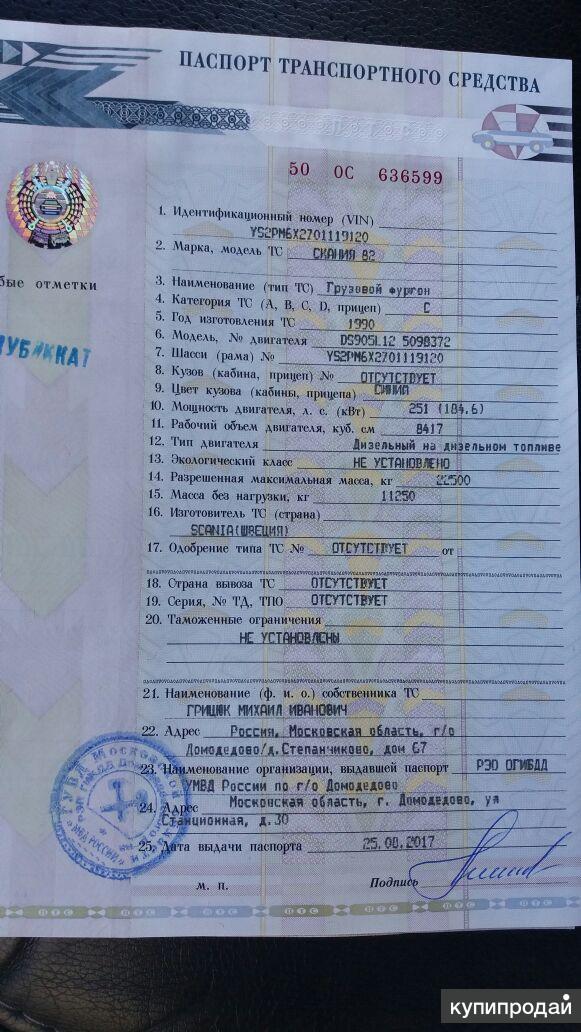 ПАСПОРТ ТРАНСПОРТНОГО СРЕДСТВА
50 ОС 636599
1. Идентификационный номер (VIN)
YS2PM6X2701119120
2. Марка, модель ТС СКАНИЯ 82
3. Наименование (тип ТС) Грузовой фургон
бые отметки
4. Категория ТС (A, B, C, D, прицеп) C
5. Год изготовления ТС 1990
6. Модель, № двигателя DS905L12 5098372
УБЛИКАТ
7. Шасси (рама) № YS2PM6X2701119120
8. Кузов (кабина, прицеп) № ОТСУТСТВУЕТ
9. Цвет кузова (кабины, прицепа) СИНИЙ
10. Мощность двигателя, л. с. (кВт) 251 (184.6)
11. Рабочий объем двигателя, куб. см 8417
12. Тип двигателя Дизельный на дизельном топливе
13. Экологический класс НЕ УСТАНОВЛЕНО
14. Разрешенная максимальная масса, кг 22500
15. Масса без нагрузки, кг 11250
16. Изготовитель ТС (страна)
SCANIA(ШВЕЦИЯ)
17. Одобрение типа ТС № ОТСУТСТВУЕТ от
18. Страна вывоза ТС ОТСУТСТВУЕТ
19. Серия, № ТД, ТПО ОТСУТСТВУЕТ
20. Таможенные ограничения
НЕ УСТАНОВЛЕНЫ
21. Наименование (ф. и. о.) собственника ТС
ГРИЩЮК МИХАИЛ ИВАНОВИЧ
22. Адрес Россия, Московская область, г/о
Домодедово/д.Степанчиково, дом 67
23. Наименование организации, выдавшей паспорт РЭО ОГИБДД
УМВД России по г/о Домодедово
24. Адрес Московская область, г. Домодедово, ул
Станционная, д.30
25. Дата выдачи паспорта 25.08.2017
м. п. Подпись
ПТС ПТС ПТС ПТС
купипродай